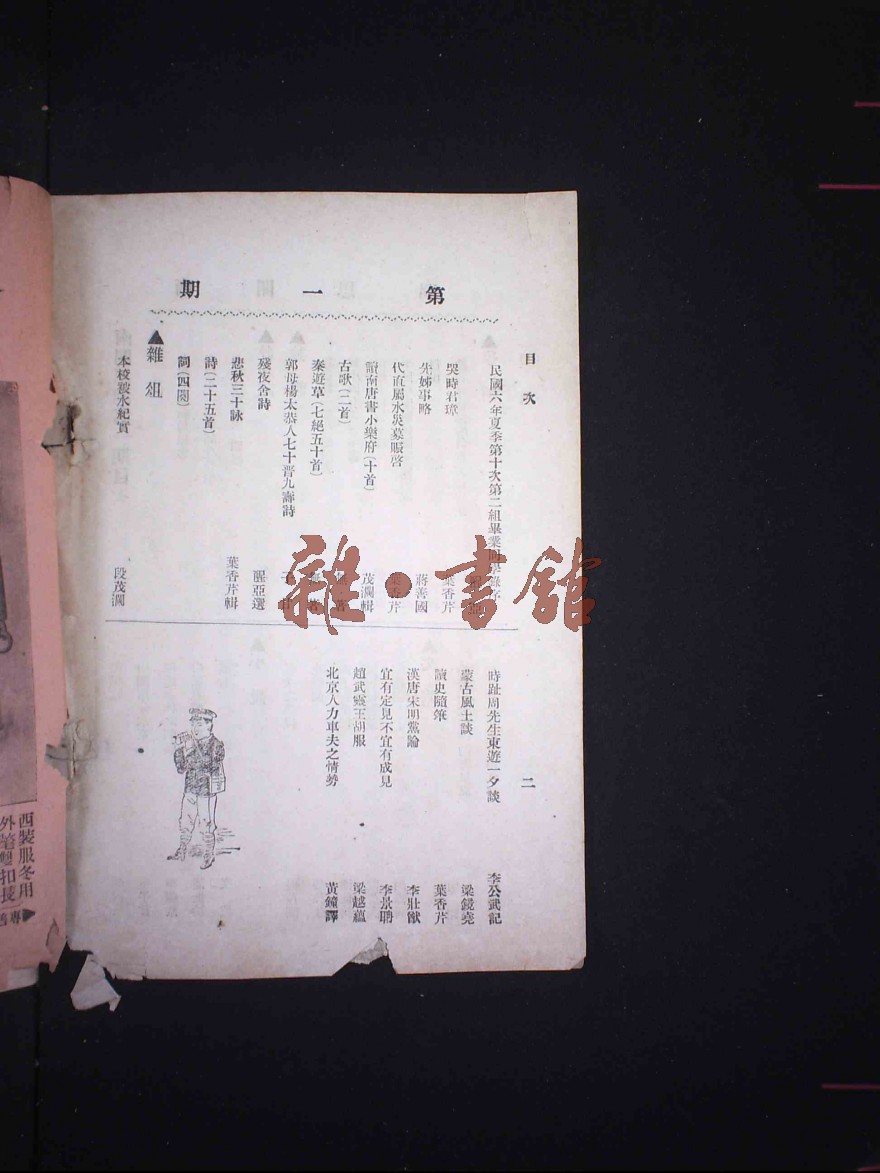 第一期
目次
二
民國六年夏季第十次第二組畢業同學錄序
哭時君璋 葉香芹
先姊事略 蔣善國
代直屬水災募賑啓 葉香芹
讀南唐書小樂府(十首) 茂瀾輯
古歌(二首)
秦遊草(七絕五十首)
郭母楊太恭人七十晉九壽詩
殘夜舍詩 醒亞選
悲秋三十詠 葉香芹輯
詩(二十五首)
詞(四闋)
▲雜俎
本校被水紀實 段茂瀾
時趾周先生東遊一夕談 李公武記
蒙古風土談 梁鏡堯
讀史隨筆 葉香芹
漢唐宋明黨論 李壯猷
宜有定見不宜有成見 李景聃
趙武靈王胡服 梁越蘊
北京人力車夫之情勢 黃鐘譯
雜·書館
西裝服冬用